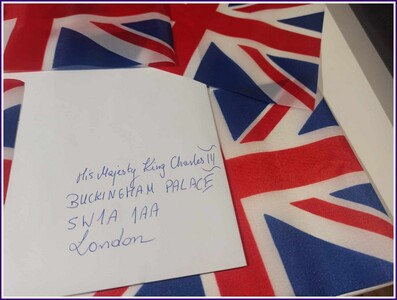 His Majesty King Charles
BUCKINGHAM PALACE
SW1A 1AA
London